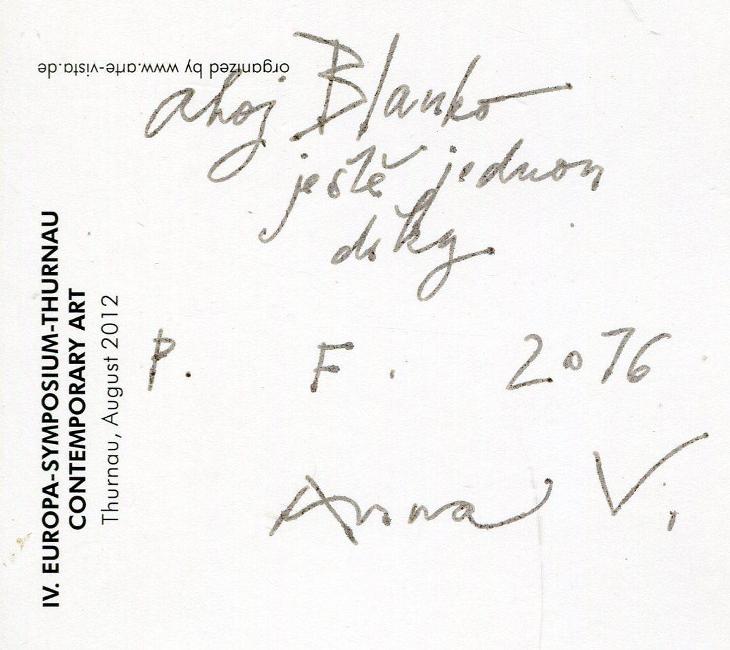 organized by www.arte-vista.de
ahoj Blanko
ještě jednou
díky
P. F. 2016
Anna V.
IV. EUROPA-SYMPOSIUM-THURNAU
CONTEMPORARY ART
Thurnau, August 2012